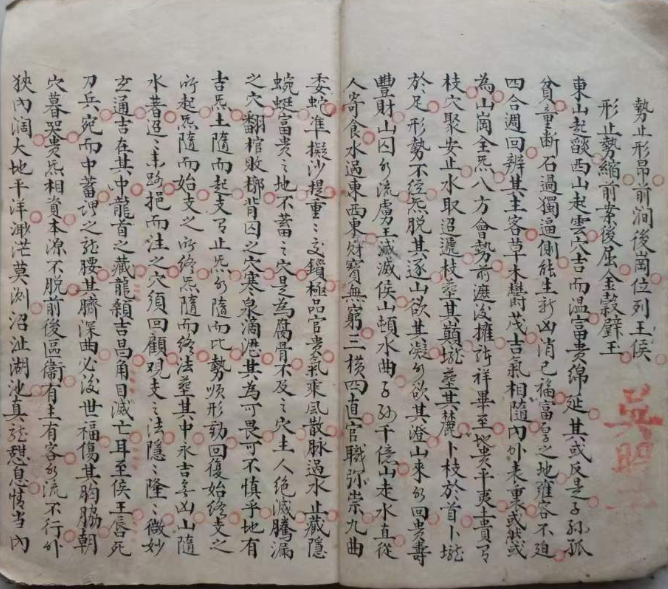 勢止形昂前澗後崗位列王侯
形止勢縮前案後屈金穀璧玉
東山起燄西山起雲穴吉而温富貴綿延其或反是子孫孤
貧童斷石過獨逼側能生新凶消已福富厚之地雍容不迫
四合週回辨其主客草木欝茂吉氣相隨內外表裏或然或
為山崗全炁八方會勢前遮後擁諸祥畢至地貴平夷土貴有
枝穴聚安止水取迢遞枝塟其巔壠塟其麓卜枝於首卜壠
於足形勢不徑炁脫其逐山欲其凝水欲其澄山來水回貴壽
豐財山囚水流虜王滅侯山頓水曲子孫千億山走水直從
人寄食水過東西財寳無窮三橫四直官職弥崇九曲
委蛇準擬沙堤重〻交鎖極品官貴氣乘風散脉過水止藏隱
蜿蜓富貴之地不蓄之穴是為腐骨不及之穴主人絶滅騰漏
之穴翻棺敗槨背囚之穴寒泉滴瀝其為可畏可不慎乎地有
吉炁土隨而起支有止炁水隨而比勢順形動回復始終支之
所起炁隨而始支之所終炁隨而終法塟其中永吉無凶山隨
水著迢〻來路挹而注之穴須回顧觀支之法隱〻隆〻微妙
玄通吉在其中龍首之藏龍顙吉昌角目滅亡耳至侯王唇死
刀兵宛而中蓄謂之龍腰其臍深曲必後世福傷其胸脇朝
穴暮哭貴炁相資本源不脫前後區衛有主有客水流不行外
狹內濶大地平洋渺茫莫測沼沚湖池真龍憩息情當內
吳照